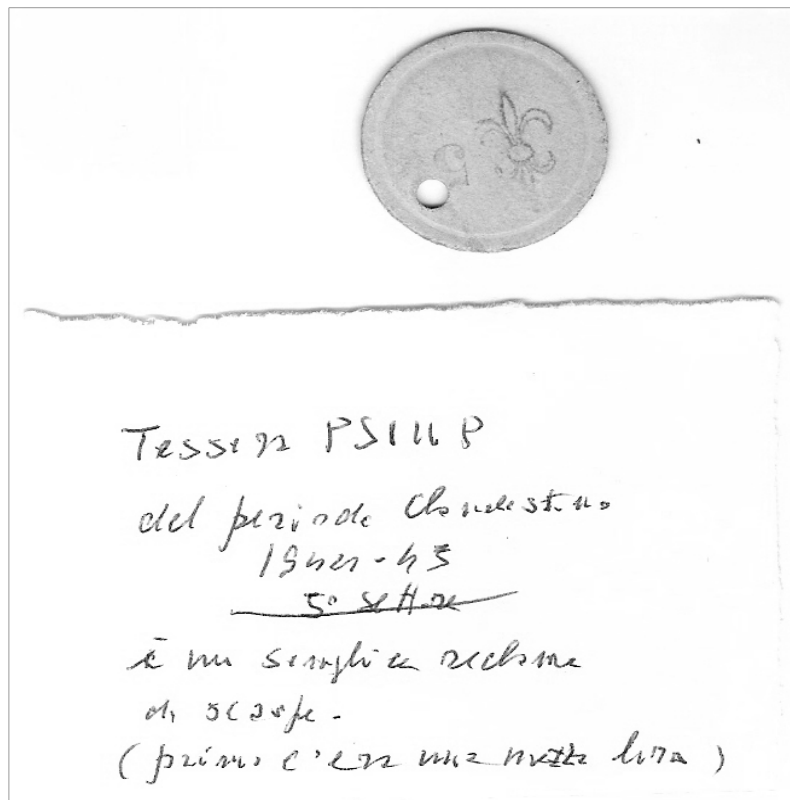 5
Tessera PSIUP
del periodo Clandestino
1944-45
5° settore
è un semplice reclame
di scarpe.
(prima c'era una mezza lira)